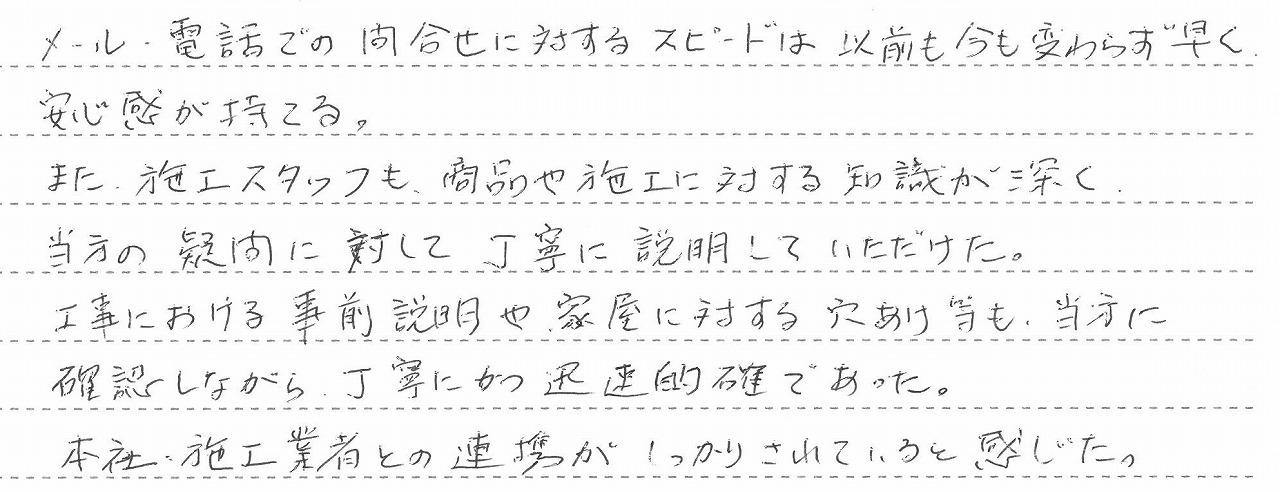 メール・電話での問合せに対するスピードは以前も今も変わらず早く、
安心感が持てる。
また、施工スタッフも、商品や施工に対する知識が深く、
当方の疑問に対して丁寧に説明していただけた。
工事における事前説明や、家屋に対する穴あけ等も、当方に
確認しながら、丁寧にかつ迅速的確であった。
本社・施工業者との連携がしっかりされていると感じた。